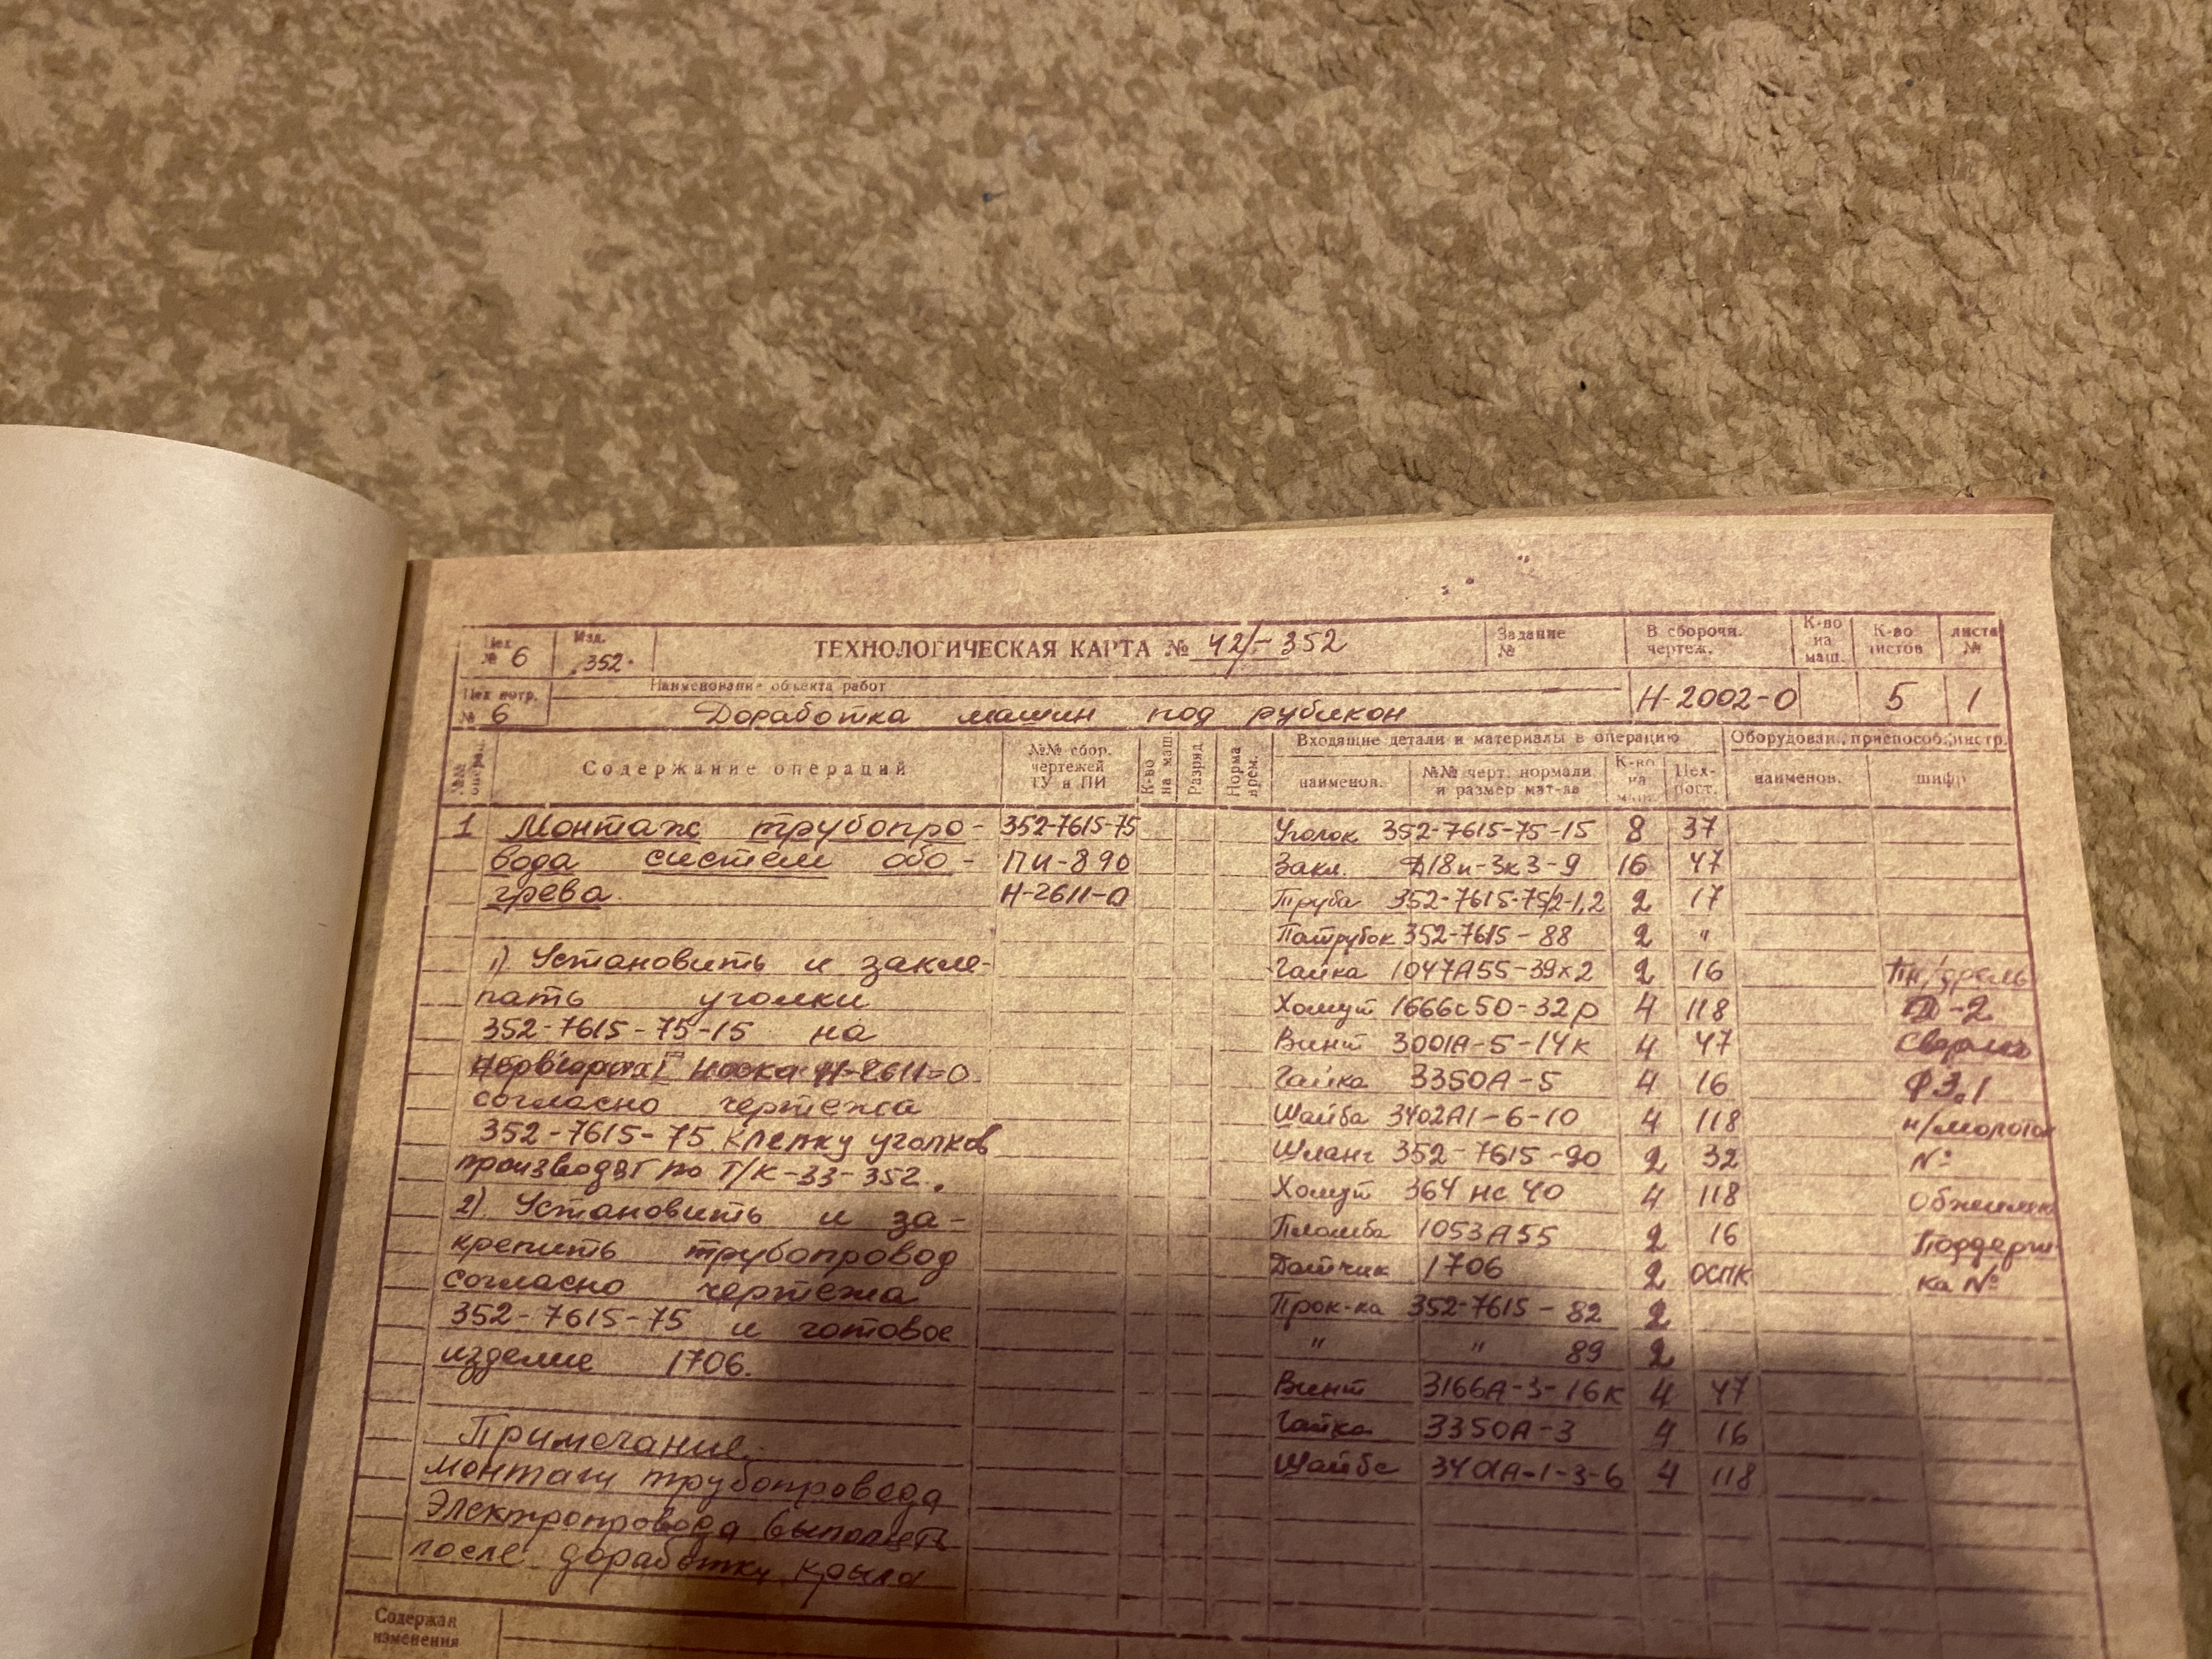 Цех № 6
Изд. 352
ТЕХНОЛОГИЧЕСКАЯ КАРТА № 42/-352
Задание №
В сборочн. чертеж.
К-во на маш.
К-во листов
листа №
Цех потр. № 6
Наименование объекта работ
Доработка машин под рубикон
Н-2002-0
5
1
№№ опера.
Содержание операций
№№ сбор. чертежей ТУ и ПИ
К-во на маш.
Разряд
Норма врем.
Входящие детали и материалы в операцию
Оборудован., приспособ., инстр.
наименов.
№№ черт. нормали и размер мат-ла
К-во на маш.
Цех-пост.
наименов.
шифр
1 Монтаж трубопро-
вода систем обо-
грева.
352-7615-75
ПИ-890
Н-2611-0
1) Установить и закле-
пать уголки
352-7615-75-15 на
носка Н-2611-0
согласно чертежа
352-7615-75. Клепку уголков
производят по Т/К-33-352.
2) Установить и за-
крепить трубопровод
согласно чертежа
352-7615-75 и готовое
изделие 1706.
Примечание.
монтаж трубопровода
Электропровода выполнять
после доработки крыла
Уголок 352-7615-75-15 8 37
Закл. Д18п-3к3-9 16 47
Труба 352-7615-75/2-1,2 2 17
Патрубок 352-7615-88 2 "
Гайка 1047А55-39х2 2 16
Хомут 1666с50-32р 4 118
Винт 3001А-5-14к 4 47
Гайка 3350А-5 4 16
Шайба 3402А1-6-10 4 118
Шланг 352-7615-90 2 32
Хомут 364нс40 4 118
Пломба 1053А55 2 16
Датчик 1706 2 ОСПК
Прок-ка 352-7615-82 2
" " 89 2
Винт 3166А-3-16к 4 47
Гайка 3350А-3 4 16
Шайба 3401А-1-3-6 4 118
Пн/дрель
Д-2
Сверло
Ф3.1
п/молоток
№
Обжимка
Поддерж-
ка №
Содержан изменения